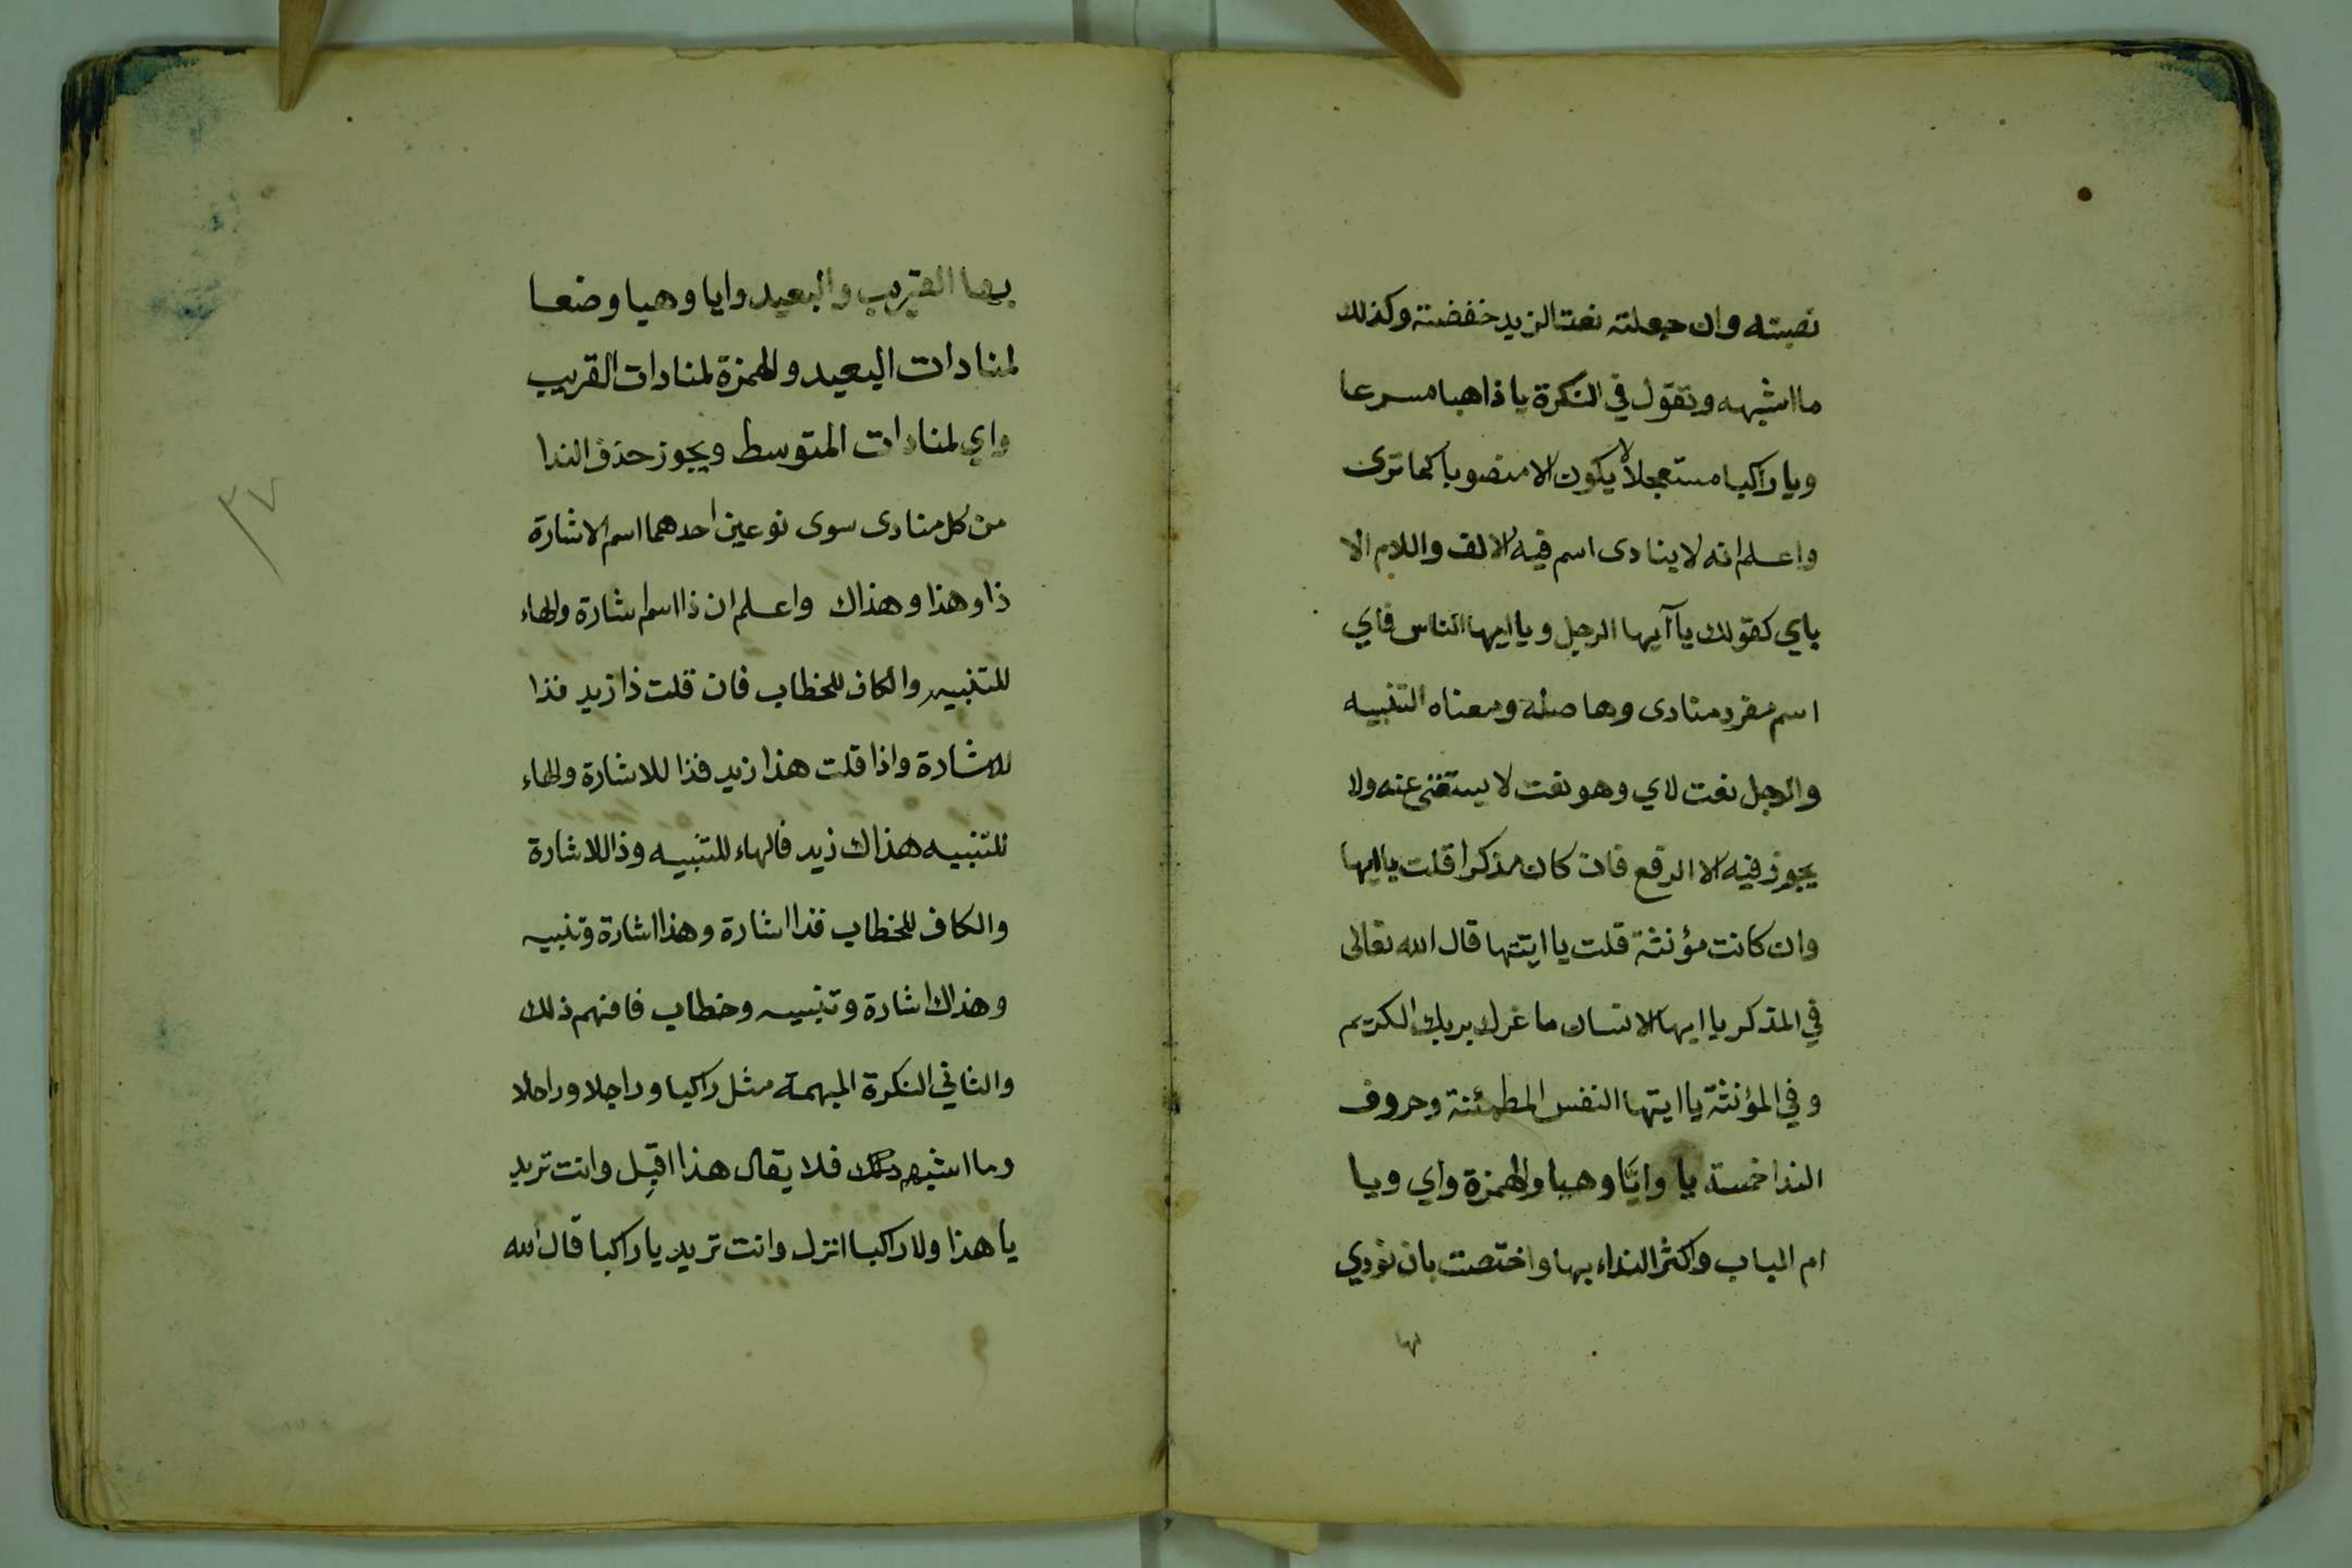 نصبته وان جعلته نعتا لزيد خفضته وكذلك
ما اشبهه وتقول في النكرة يا ذاهبا مسرعا
ويا راكبا مستعجلا لا يكون الا منصوبا كما ترى
واعلم انه لا ينادى اسم فيه الالف واللام الا
باي كقولك يا آيها الرجل ويا ايها الناس فاي
اسم مفرد منادى وها صلة ومعناه التنبيه
والرجل نعت لاي وهو نعت لا يستغنى عنه ولا
يجوز فيه الا الرفع فان كان مذكرا قلت يا ايها
وان كانت مؤنثة قلت يا ايتها قال الله تعالى
في المذكر يا ايها الانسان ما غرك بربك الكريم
وفي المؤنثة يا ايتها النفس المطمئنة وحروف
الندا خمسة يا وايا وهيا والهمزة واي ويا
ام الباب واكثر النداء بها واختصت بان نودي
بها
بها القريب والبعيد وايا وهيا وضعا
لمنادات البعيد والهمزة لمنادات القريب
واي لمنادات المتوسط ويجوز حذف الندا
من كل منادى سوى نوعين احدهما اسم الاشارة
ذا وهذا وهذاك واعلم ان ذا اسم اشارة والهاء
للتنبيه والكاف للخطاب فان قلت ذا زيد فذا
للاشارة واذا قلت هذا زيد فذا للاشارة والهاء
للتنبيه هذاك زيد فالهاء للتنبيه وذا للاشارة
والكاف للخطاب فذا اشارة وهذا اشارة وتنبيه
وهذاك اشارة وتنبيه وخطاب فافهم ذلك
والثاني النكرة المبهمة مثل راكبا وراجلا وراحلا
وما اشبه ذلك فلا يقال هذا اقبل وانت تريد
يا هذا ولا راكبا انزل وانت تريد يا راكبا قال الله
٣٧